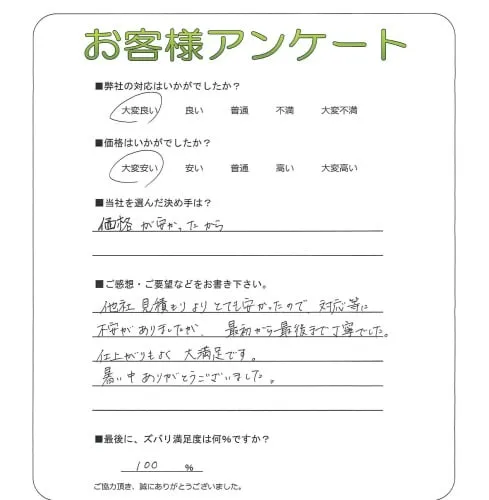 お客様アンケート
■弊社の対応はいかがでしたか?
大変良い 良い 普通 不満 大変不満
■価格はいかがでしたか?
大変安い 安い 普通 高い 大変高い
■当社を選んだ決め手は?
価格が安かったから
■ご感想・ご要望などをお書き下さい。
他社見積もりよりとても安かったので、対応等に
不安がありましたが、最初から最後まで丁寧でした。
仕上がりもよく大満足です。
暑い中ありがとうございました。
■最後に、ズバリ満足度は何%ですか?
100 %
ご協力頂き、誠にありがとうございました。